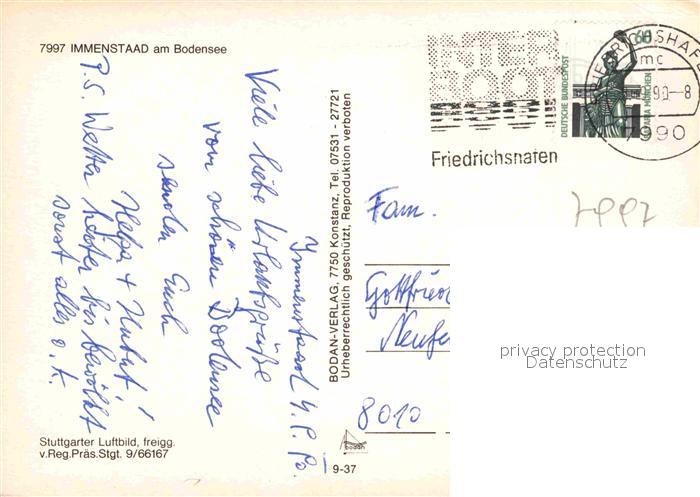 7997 IMMENSTAAD am Bodensee
Immenstaad
Viele liebe Urlaubsgrüße
vom schönen Bodensee
senden Euch
Helga + Hubert!
P.S. Wetter heiter bis bewölkt
sonst alles o.k.
Stuttgarter Luftbild, freigg.
v.Reg.Präs.Stgt. 9/66167
BODAN-VERLAG, 7750 Konstanz, Tel. 07531 - 27721
Urheberrechtlich geschützt, Reproduktion verboten
bodan
9-37
INTER
BOOT
Friedrichshafen
DEUTSCHE BUNDESPOST
60
BAVARIA MÜNCHEN
FRIEDRICHSHAFEN
mc
90-8
7990
7997
Fam.
Gottfried
8010
privacy protection
Datenschutz